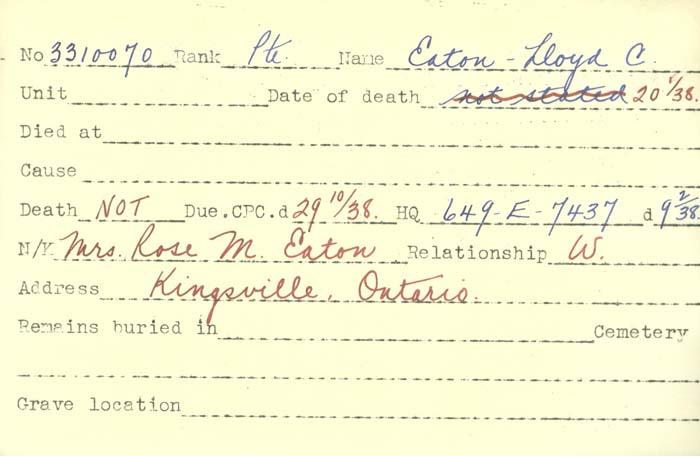 No 3310070 Rank Pte. Name Eaton - Lloyd C.
Unit Date of death not stated 20 1/38.
Died at
Cause
Death NOT Due.CPC.d 29 10/38. HQ 649-E-7437 d 9 2/38.
N/K Mrs. Rose M. Eaton Relationship W.
Address Kingsville, Ontario.
Remains buried in Cemetery
Grave location